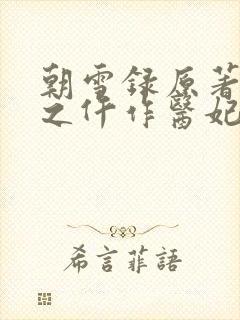 朝雪録原著
之仵作醫妃
希言菲語